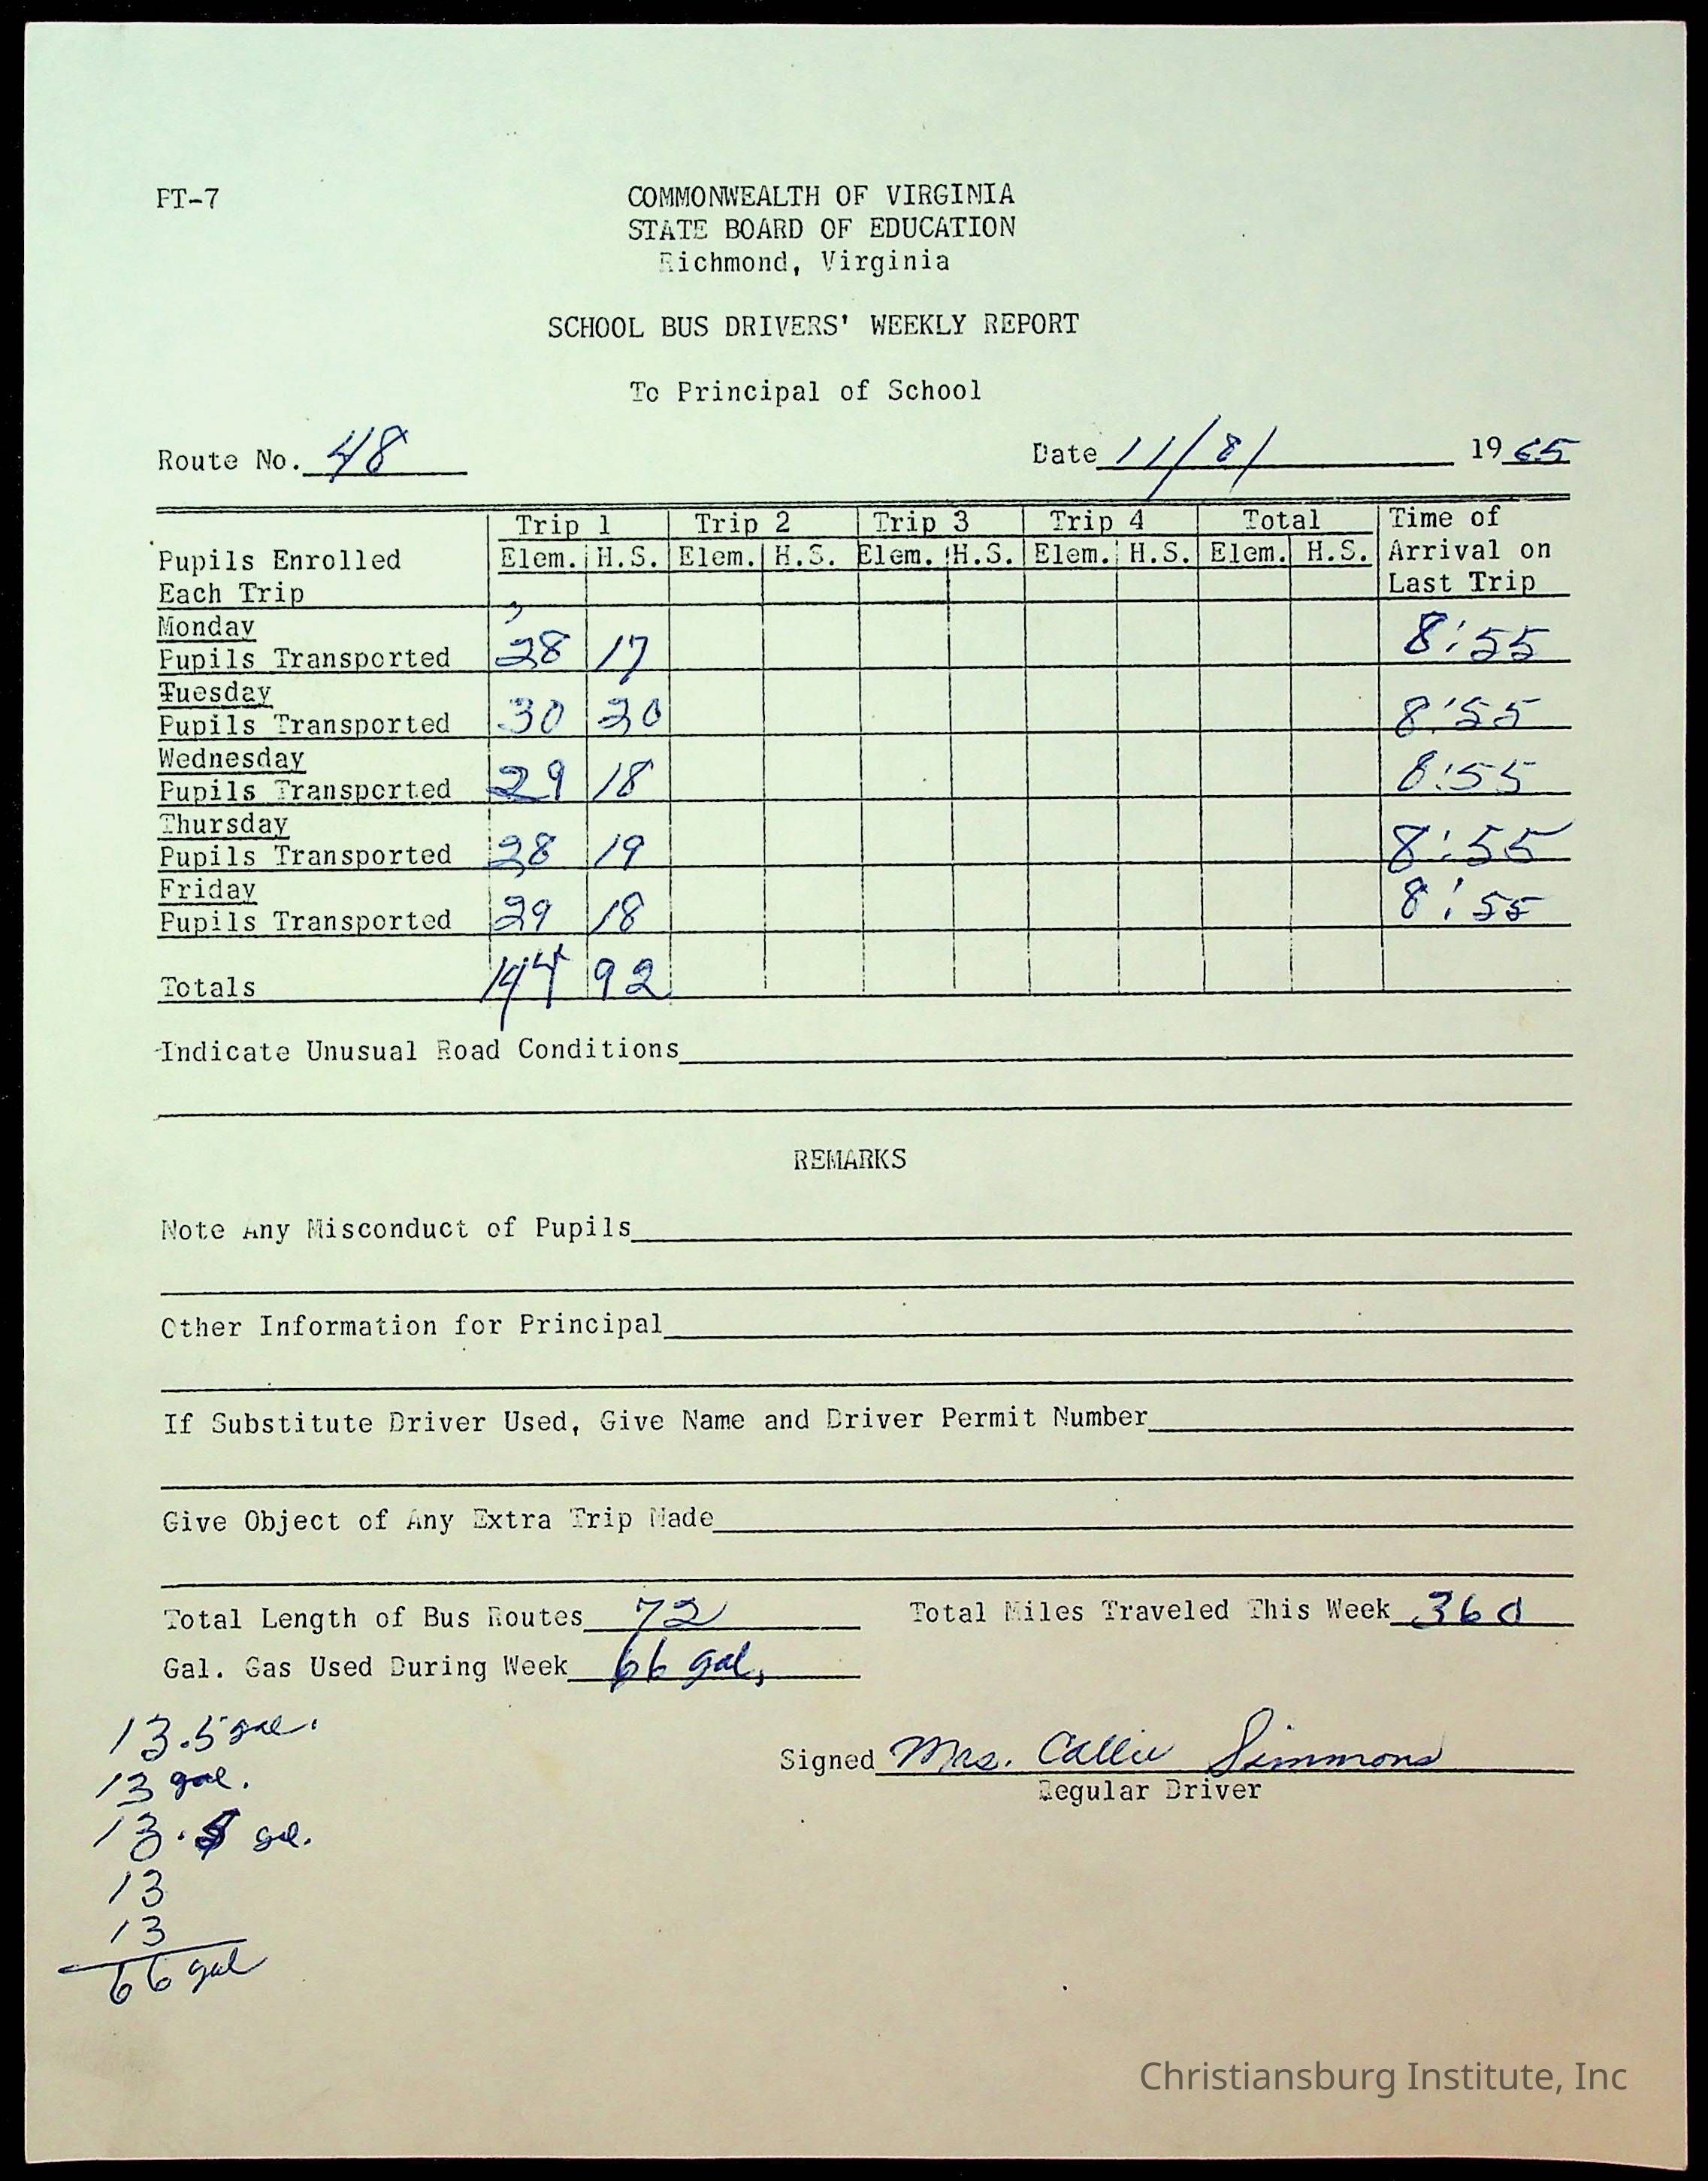 PT-7
COMMONWEALTH OF VIRGINIA
STATE BOARD OF EDUCATION
Richmond, Virginia
SCHOOL BUS DRIVERS' WEEKLY REPORT
To Principal of School
Route No. 48 Date 11/8/ 1965
Trip 1 Trip 2 Trip 3 Trip 4 Total Time of
Pupils Enrolled Elem. H.S. Elem. H.S. Elem. H.S. Elem. H.S. Elem. H.S. Arrival on
Each Trip Last Trip
Monday
Pupils Transported 28 17 8:55
Tuesday
Pupils Transported 30 20 8:55
Wednesday
Pupils Transported 29 18 8:55
Thursday
Pupils Transported 28 19 8:55
Friday
Pupils Transported 29 18 8:55
Totals 144 92
Indicate Unusual Road Conditions
REMARKS
Note Any Misconduct of Pupils
Other Information for Principal
If Substitute Driver Used, Give Name and Driver Permit Number
Give Object of Any Extra Trip Made
Total Length of Bus Routes 72 Total Miles Traveled This Week 360
Gal. Gas Used During Week 66 gal.
13.5 gal.
Signed Mrs. Callie Simmons
13 gal.
Regular Driver
13.5 gal.
13
13
66 gal
Christiansburg Institute, Inc